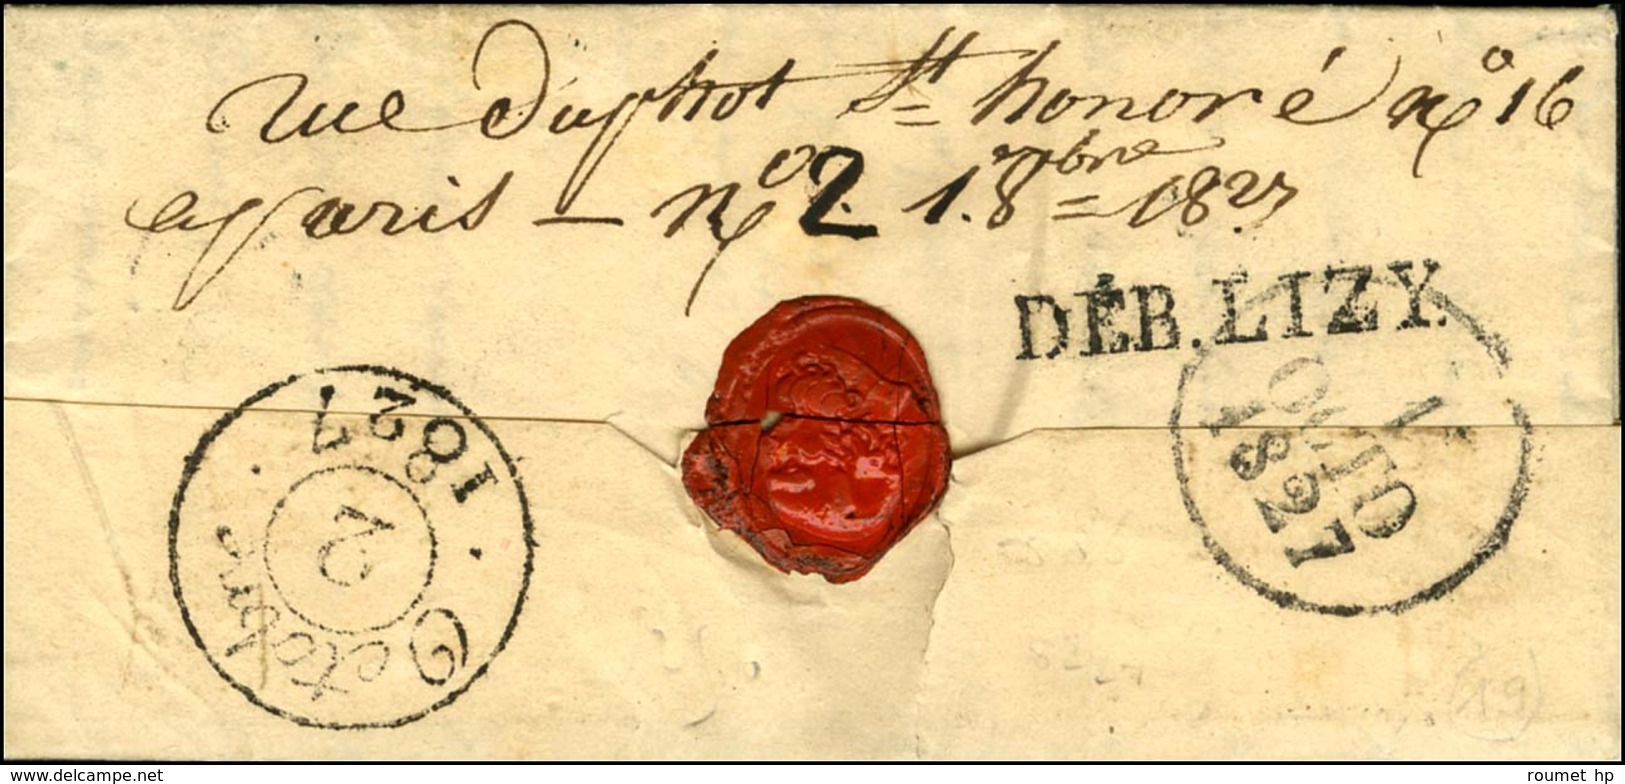 rue duphot St honoré no 16
a paris - No 2. 1. 8bre = 1827
DÉB. LIZY.
1
OCTO
1827
1827
2
Octobre
(19)
www.delcampe.net
roumet hp